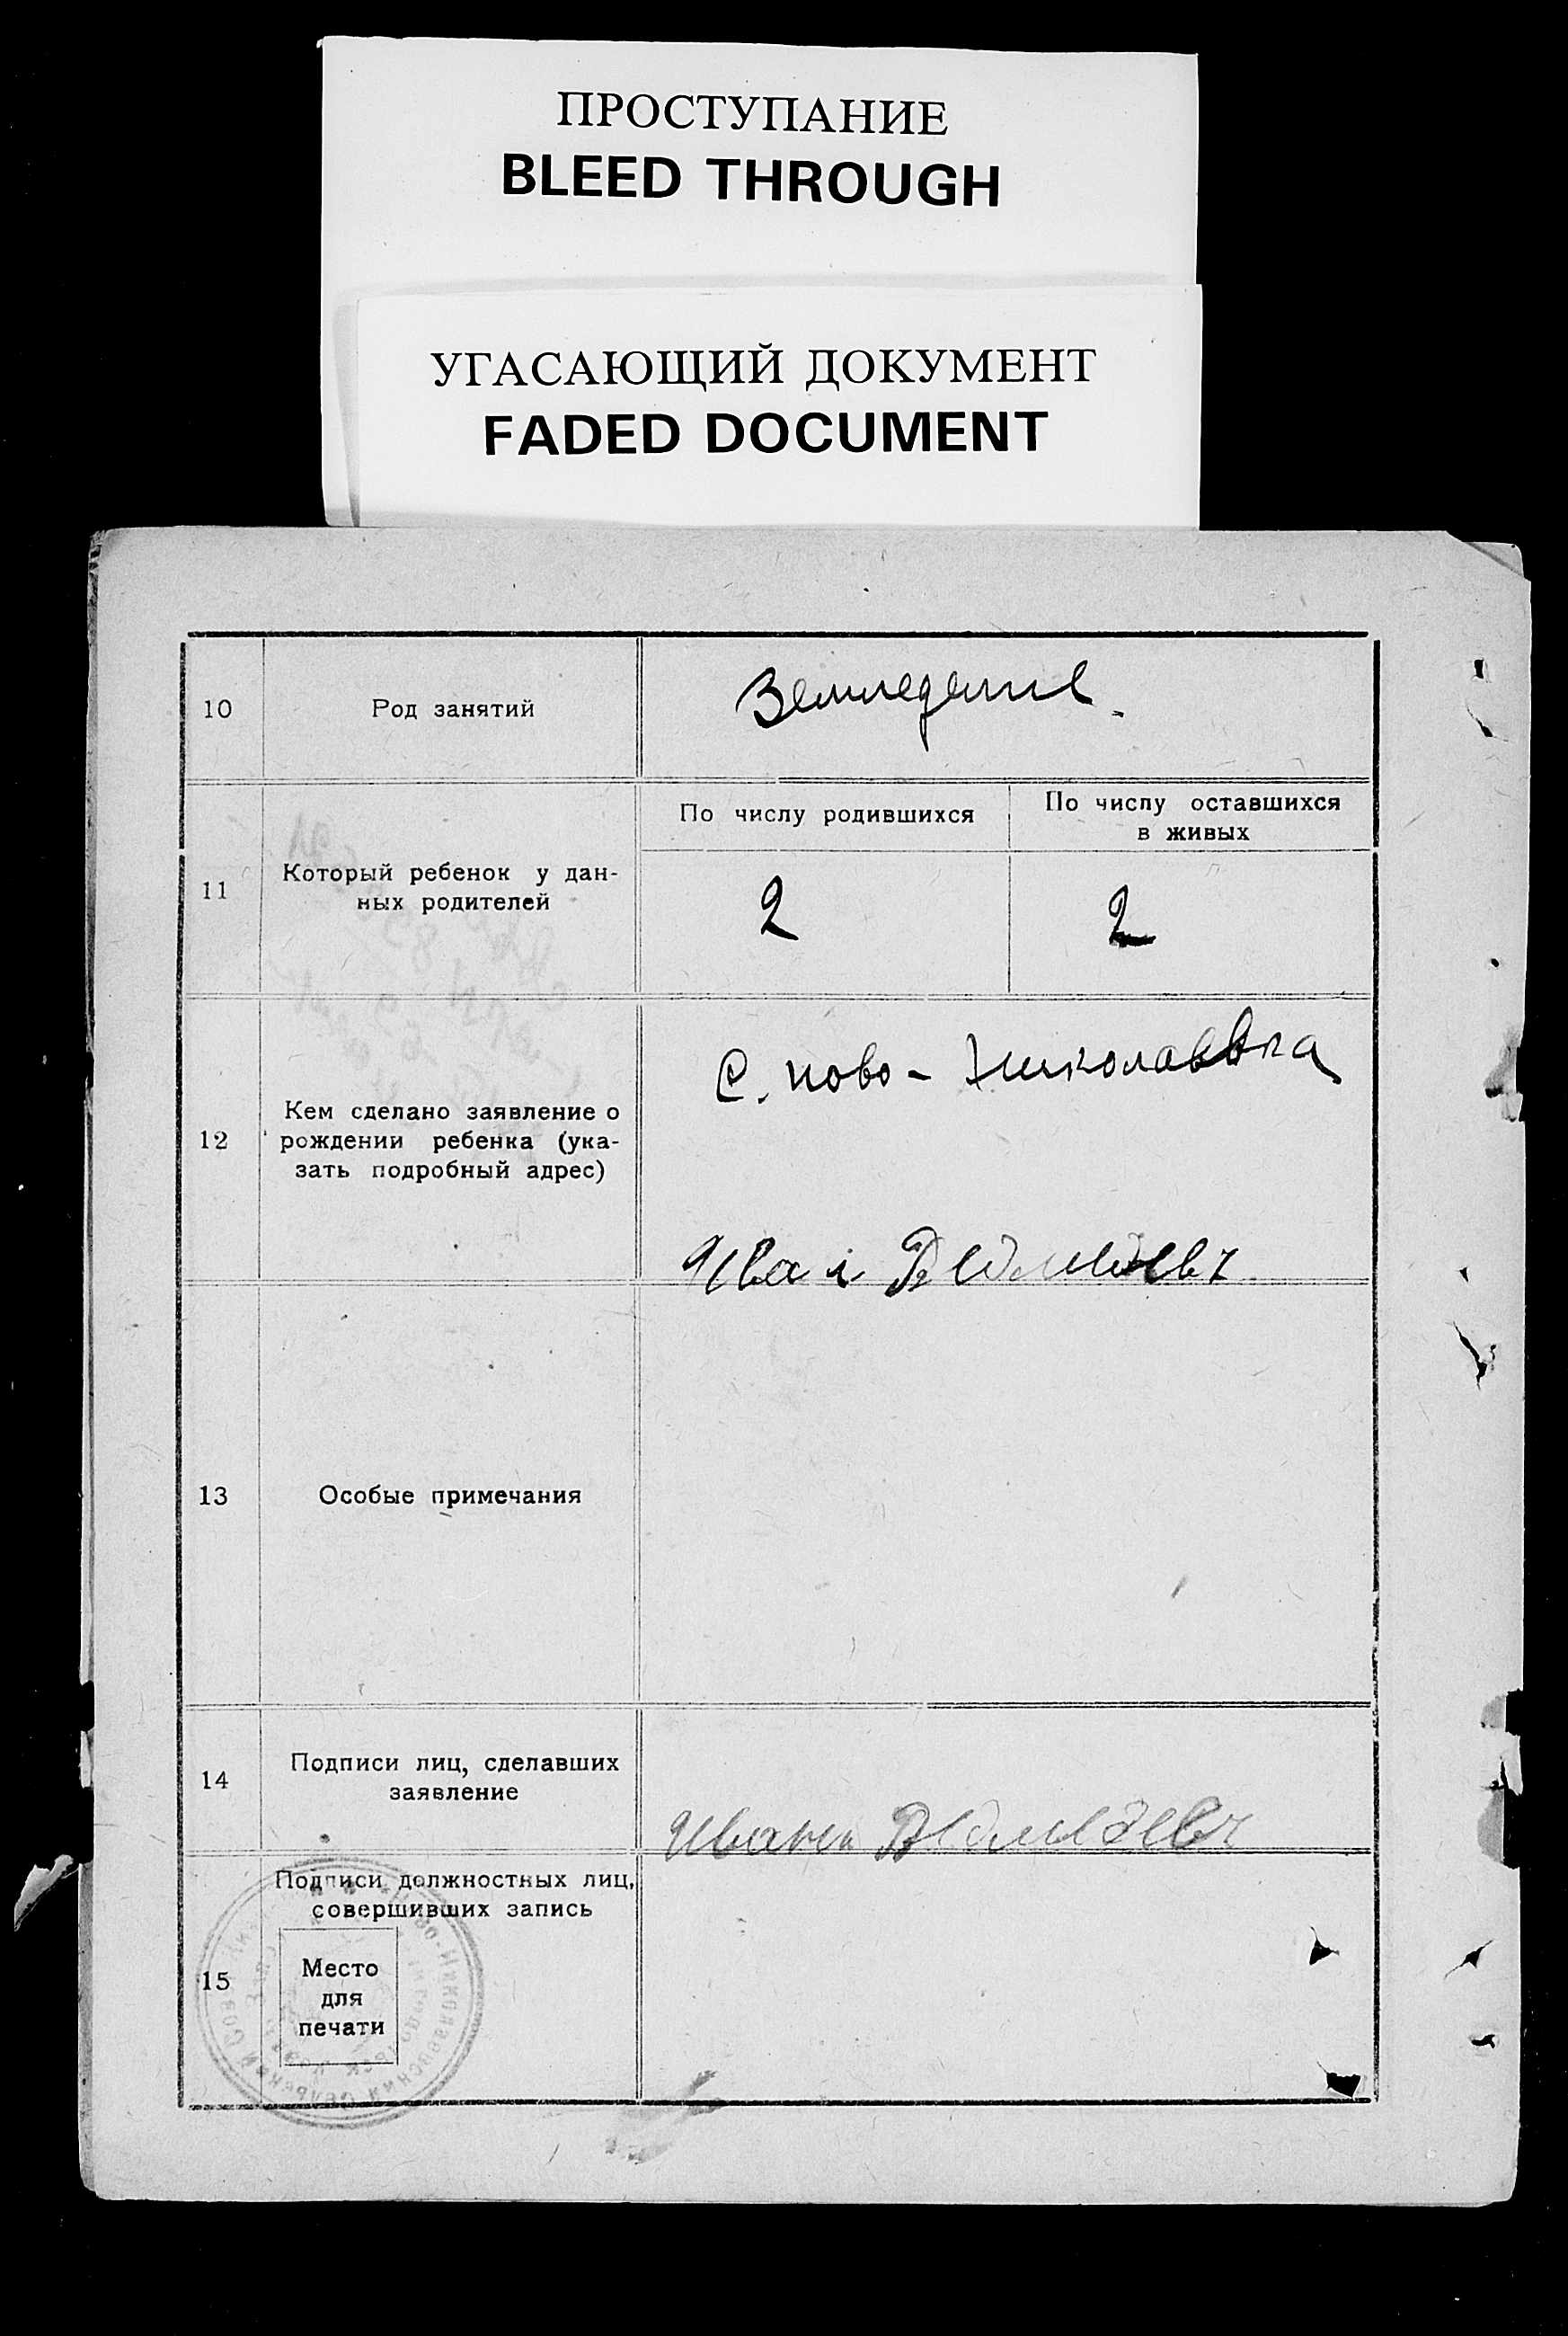 ПРОСТУПАНИЕ
BLEED THROUGH
УГАСАЮЩИЙ ДОКУМЕНТ
FADED DOCUMENT
10
Род занятий
Земледелие.
11
Который ребенок у дан-
ных родителей
По числу родившихся
По числу оставшихся
в живых
2
2
12
Кем сделано заявление о
рождении ребенка (ука-
зать подробный адрес)
С. Ново - Николаевка
Иван
13
Особые примечания
14
Подписи лиц, сделавших
заявление
Иванъ
15
Подписи должностных лиц,
совершивших запись
Место
для
печати